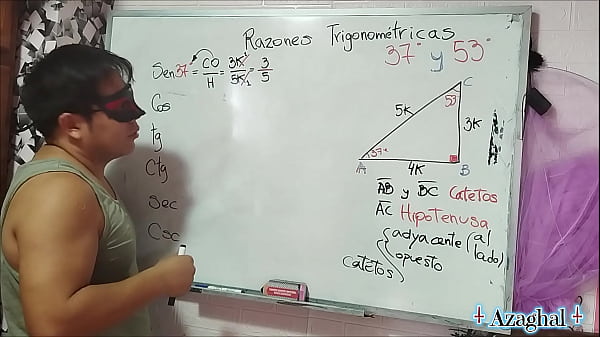 Razones Trigonométricas
37° y 53°
Sen37 = CO/H = 3K/5K = 3/5
Cos
tg
Ctg
Sec
Csc
C
53
5K
3K
37°
A
4K
B
AB y BC Catetos
AC Hipotenusa
Catetos { adyacente (al lado)
opuesto
Azaghal